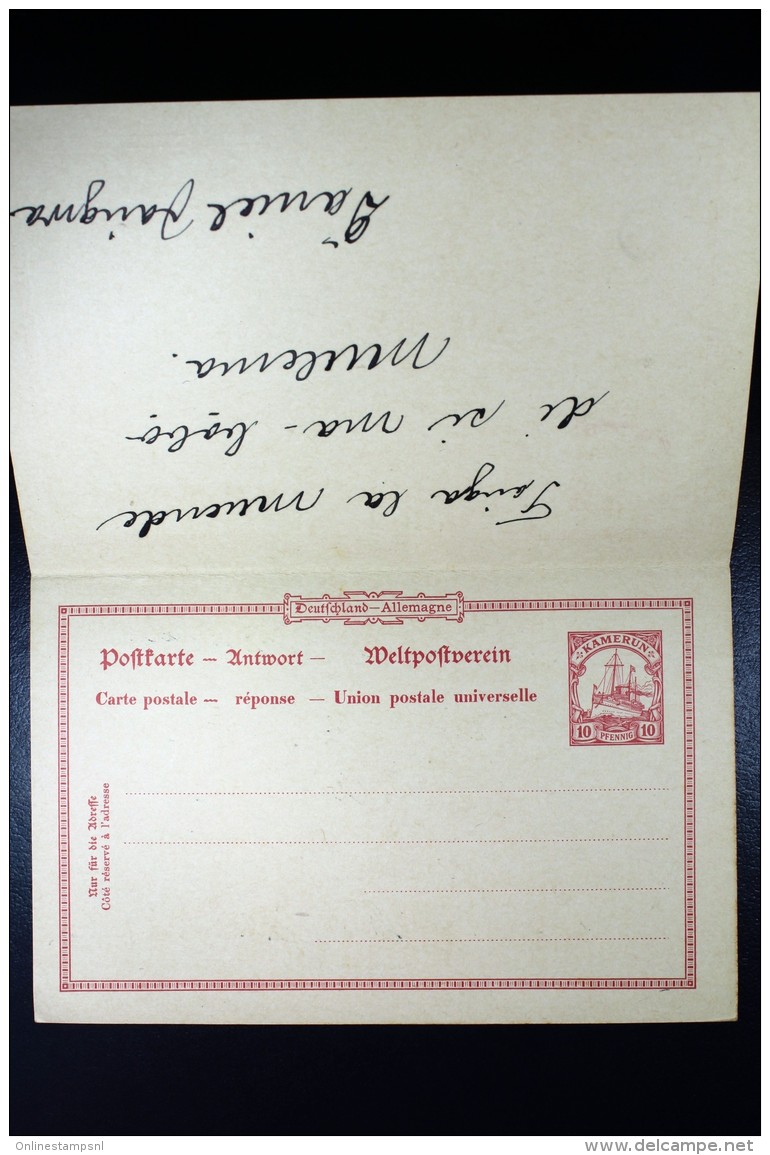 Tonga la muende
di si ma-babo
mulema.
Daniel
Deutschland—Allemagne
Postkarte — Antwort — Weltpostverein
Carte postale — réponse — Union postale universelle
KAMERUN
10 PFENNIG 10
Nur für die Adresse
Côté réservé à l'adresse
Onlinestampsnl
www.delcampe.net